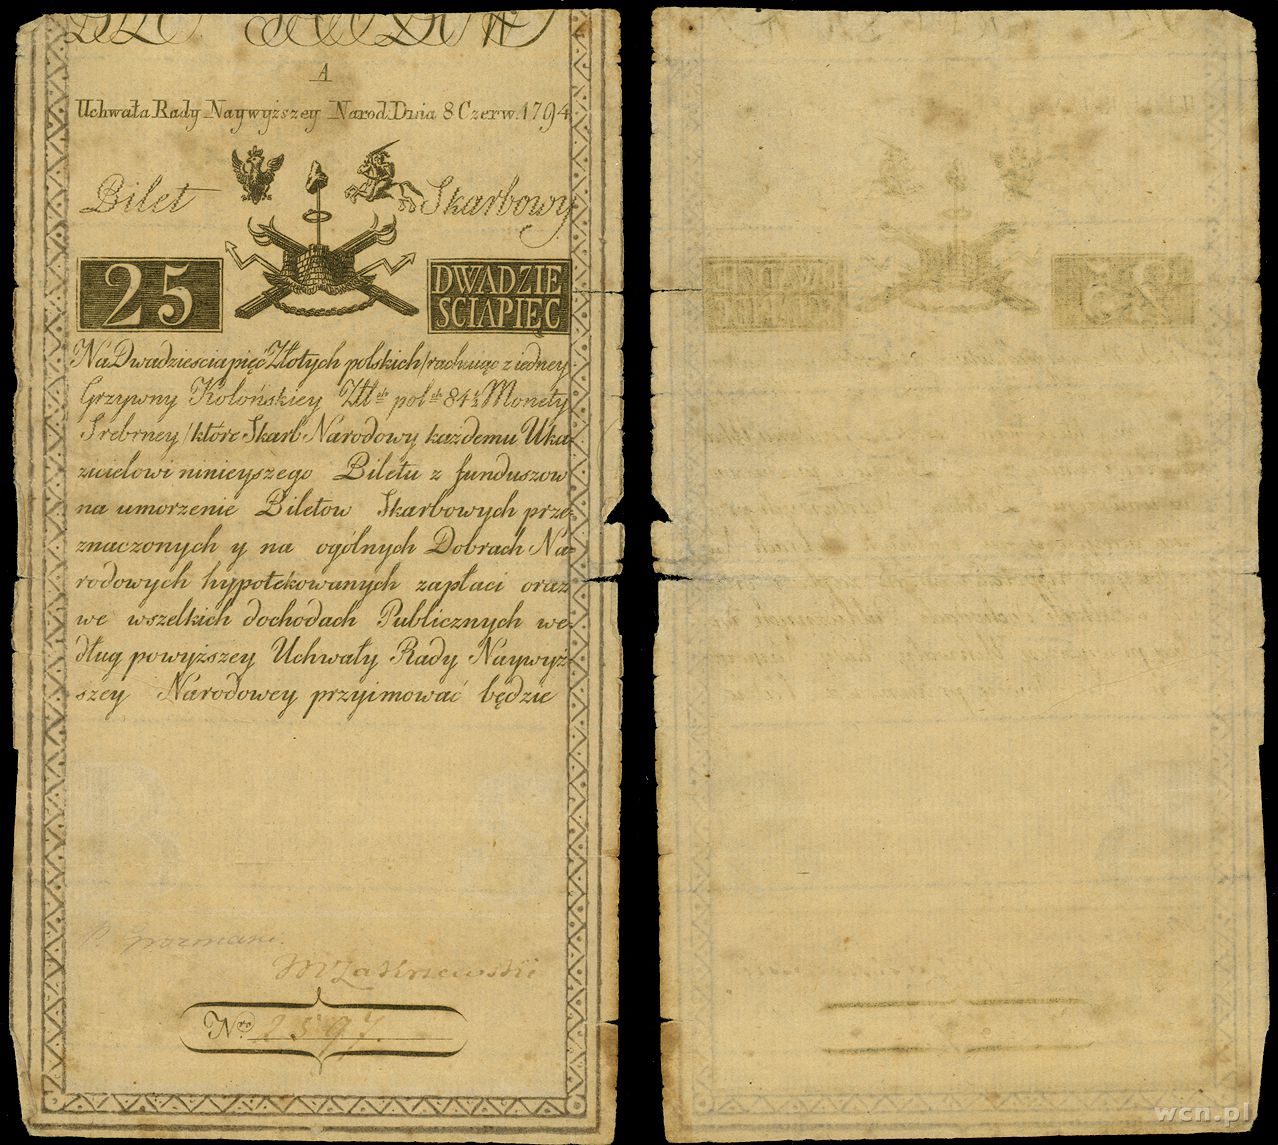 A
Uchwała Rady Naywyższey Narod. Dnia 8 Czerw. 1794
Bilet Skarbowy
25 DWADZIE
SCIAPIĘC
Na Dwadziescia pięć Złotych polskich /rachuiąc z iedney
Grzywny Kolońskiey Złt ch pol ch 84½ Monety
Srebrney/ które Skarb Narodowy każdemu Uka-
zicielowi ninieyszego Biletu z funduszow
na umorzenie Biletow Skarbowych prze-
znaczonych y na ogólnych Dobrach Na-
rodowych hypotekowanych zapłaci oraz
we wszelkich dochodach Publicznych we-
dług powyższey Uchwały Rady Naywyż-
szey Narodowey przyimować będzie
MZakrzewski
Nro 2597.
wcn.pl